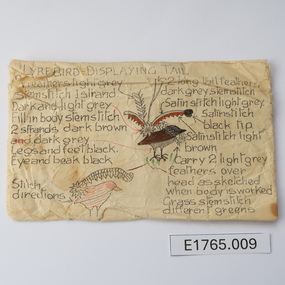 LYREBIRD DISPLAYING TAIL
feathers light grey
Stemstitch 1 strand
Dark and light grey
Fill in body stemstitch
2 strands, dark brown
and dark grey
Legs and feet black
Eye and beak black
Stitch
directions
2 long tail feathers
dark grey stemstitch
Satin stitch light grey
Satin stitch
black tip
Satin stitch light
brown
Carry 2 light grey
feathers over
head as sketched
when body is worked
Grass stemstitch
different greens
E1765.009